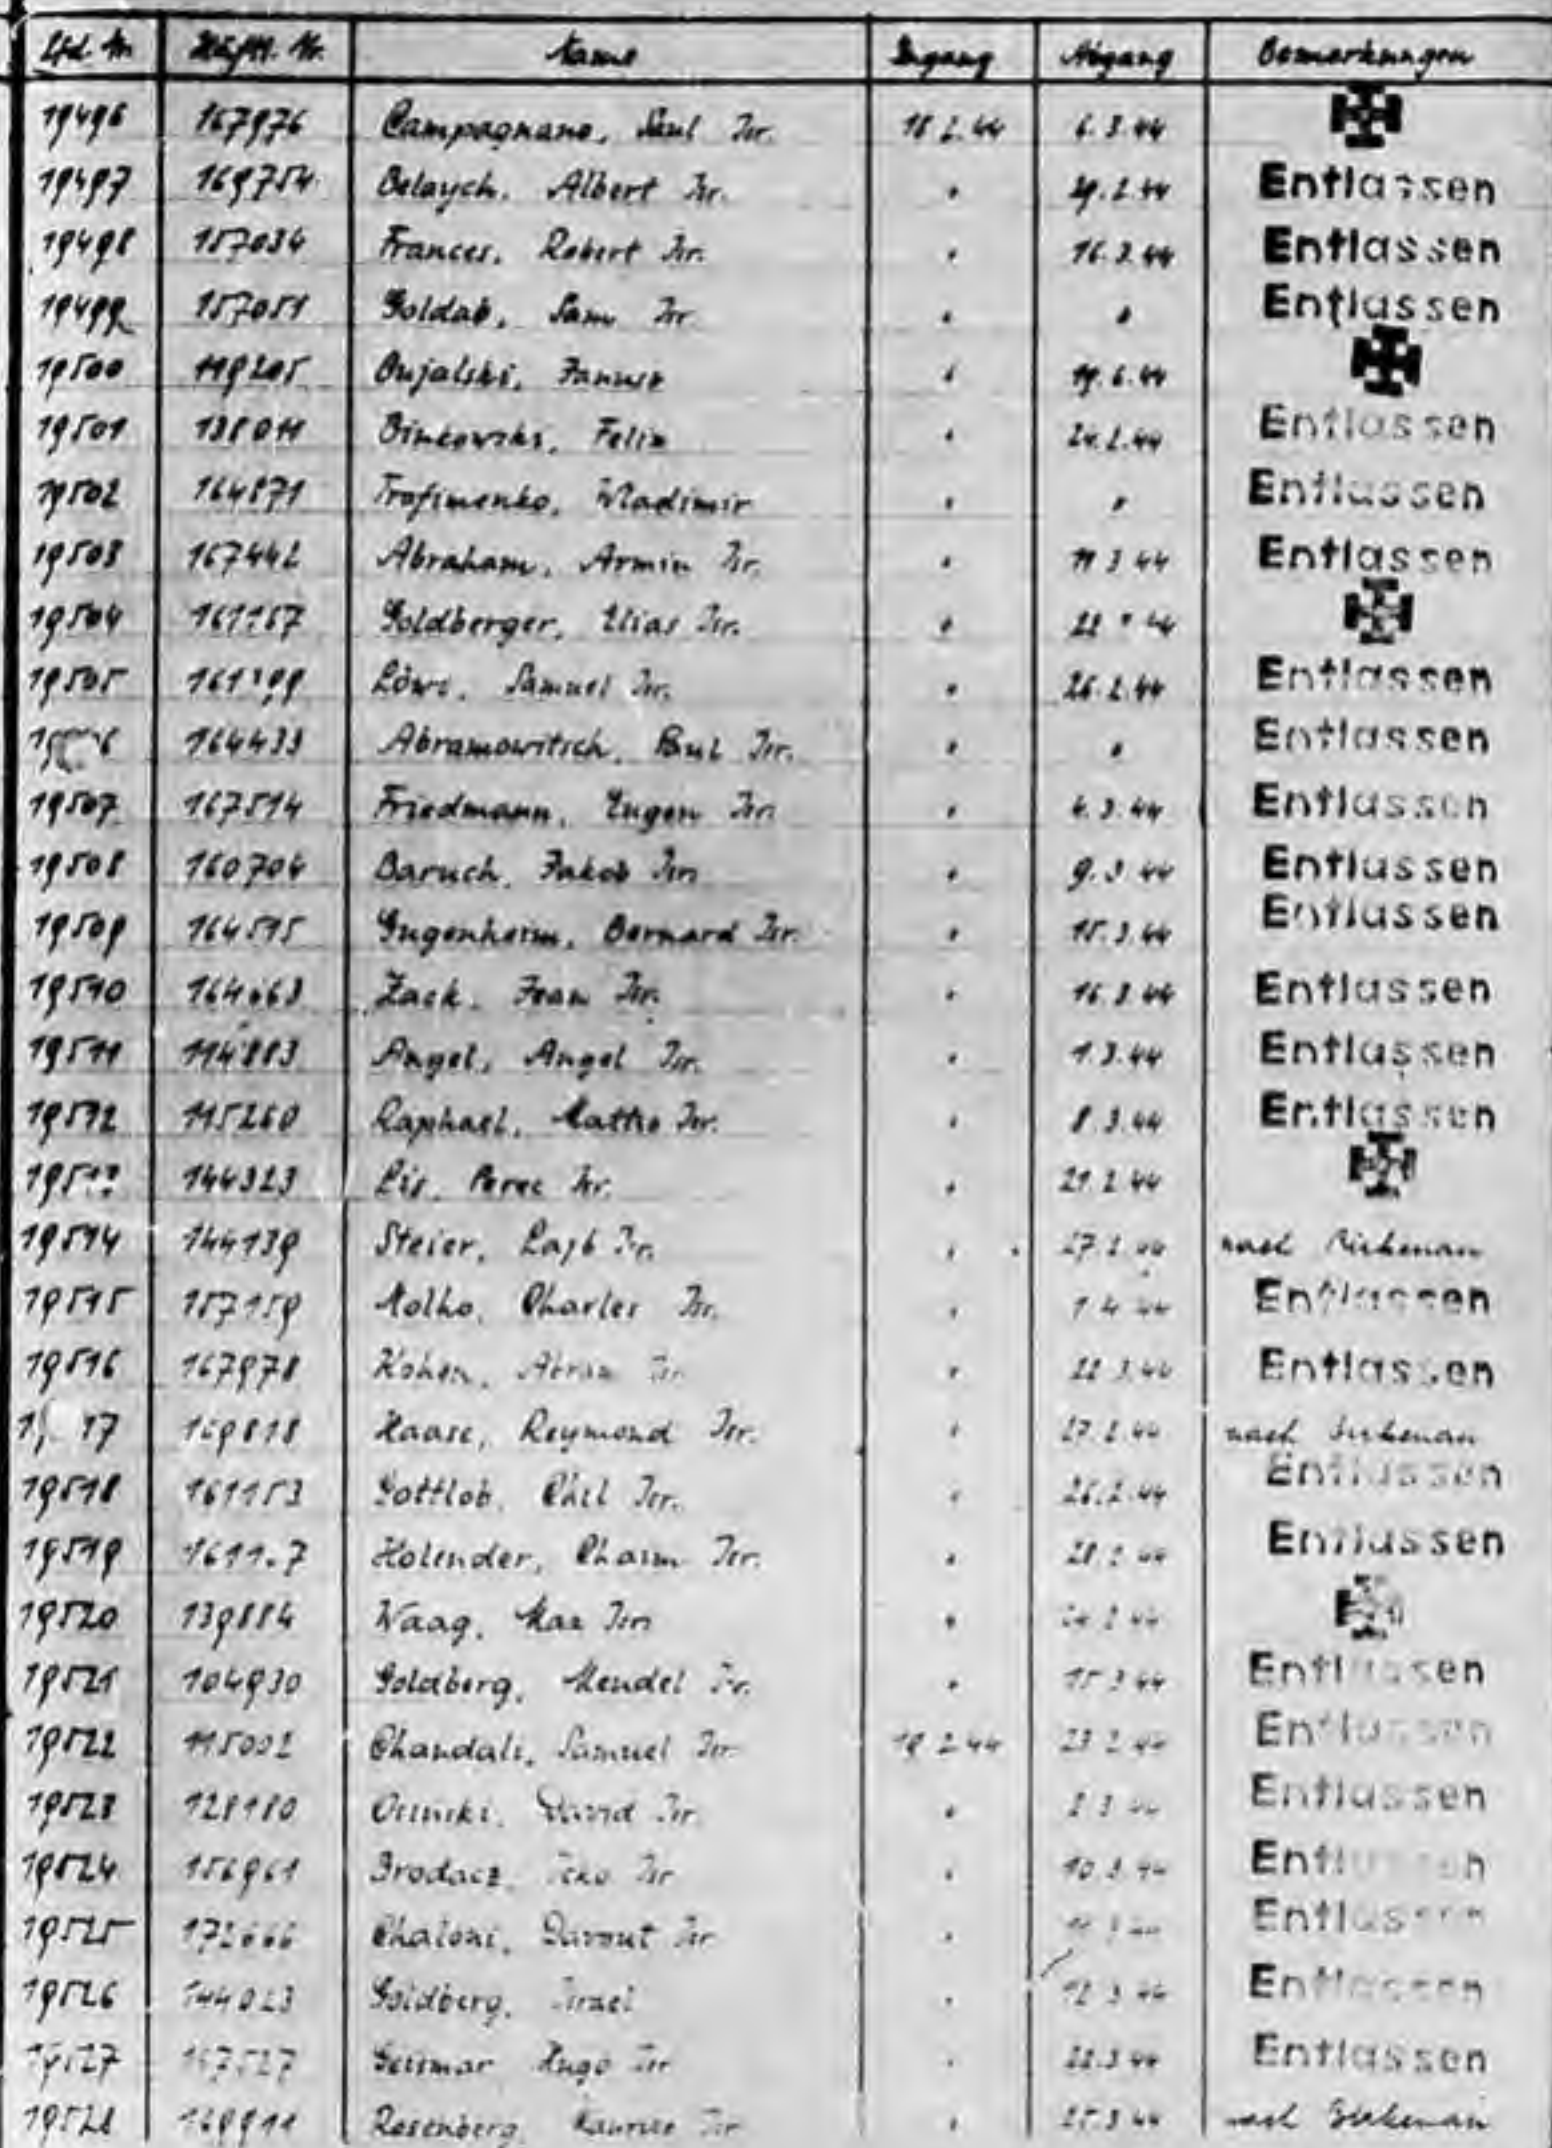 Lfd. Nr. Häftl. Nr. Name Zugang Abgang Bemerkungen
19496 167976 Campagnano, Saul Isr. 18.2.44 6.3.44
19497 169754 Belaych, Albert Isr. " 29.2.44 Entlassen
19498 157034 Frances, Robert Isr. " 16.3.44 Entlassen
19499 157051 Goldab, Sam Isr. " " Entlassen
19500 119205 Bujalski, Janusz " 19.6.44
19501 138011 Binkowski, Felix " 24.2.44 Entlassen
19502 164871 Trofimenko, Wladimir " " Entlassen
19503 167442 Abraham, Armin Isr. " 11.3.44 Entlassen
19504 Goldberger, Elias Isr. "
19505 Löwi, Samuel Isr. " 26.2.44 Entlassen
164433 Abramowitsch, Paul Isr. " " Entlassen
19507 167514 Friedmann, Eugen Isr. " 4.3.44 Entlassen
19508 160704 Baruch, Jakob Isr. " 9.3.44 Entlassen
19509 164515 Gugenheim, Bernard Isr. " 15.3.44 Entlassen
19510 Zack, Jean Isr. " 16.3.44 Entlassen
19511 114883 Angel, Angel Isr. " 1.3.44 Entlassen
19512 115260 Raphael, Isr. " 8.3.44 Entlassen
144323 Lis, Perec Isr. " 21.2.44
19514 144139 Steier, Lajb Isr. " 27.2.44 nach Birkenau
19515 157159 Molho, Charles Isr. " 1.4.44 Entlassen
19516 167978 Kohen, Abram Isr. " 22.3.44 Entlassen
169818 Haase, Reymond Isr. " 27.2.44 nach Birkenau
19518 161153 Gottlob, Chil Isr. " 26.2.44 Entlassen
19519 Holender, Chaim Isr. " 28.2.44 Entlassen
19520 139884 Waag, Max Isr. " 24.2.44
19521 104930 Goldberg, Mendel Isr. " 15.3.44 Entlassen
19522 115002 Chandali, Samuel Isr. 18.2.44 23.2.44 Entlassen
19523 128180 David Isr. " Entlassen
19524 156961 Brodacz, Icko Isr. " 10.3.44 Entlassen
19525 172666 Chaloni, Davout Isr. " Entlassen
19526 144023 Goldberg, Israel " 12.3.44 Entlassen
19527 167527 Geismar Hugo Isr. " 22.3.44 Entlassen
19528 169911 Rosenberg, Maurice Isr. " 25.3.44 nach Birkenau